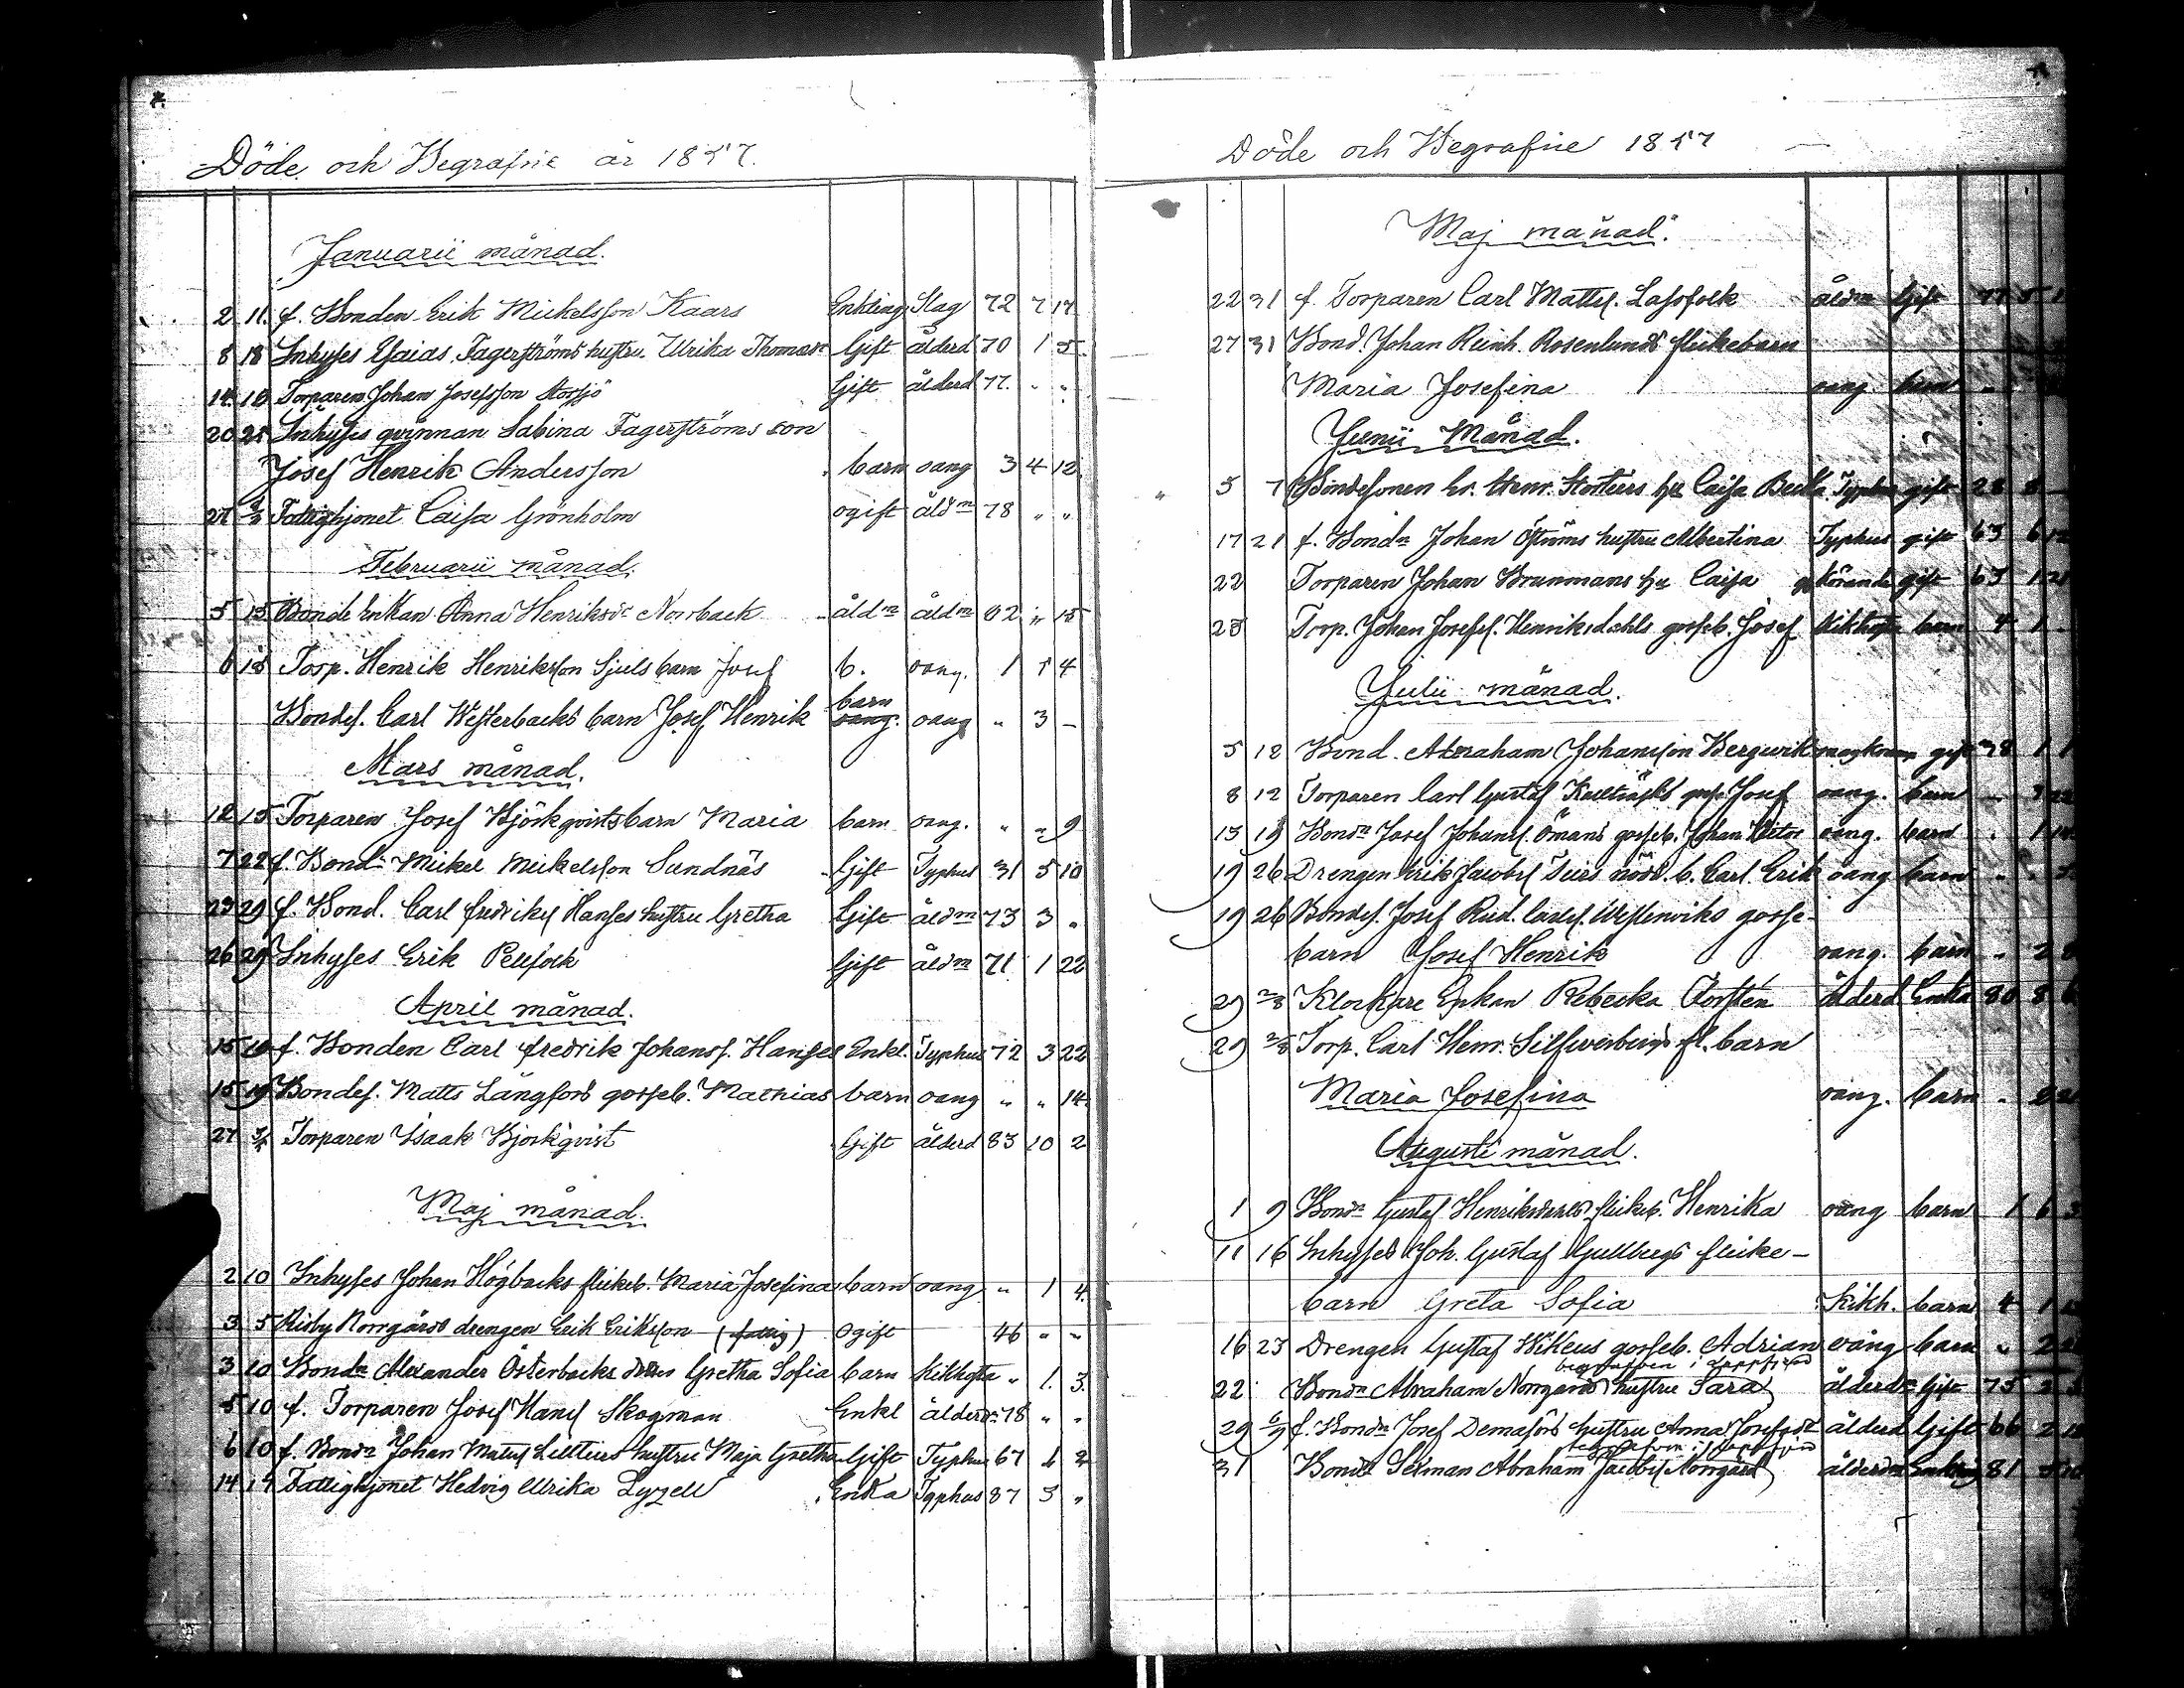 Döde och Begrafne år 1857.
Januarii månad.
2 11 f. Bonden Erik Mickelsson Kaars Enkling Slag 72 7 17
8 18 Inhyses Esaias Fagerströms hustru Ulrika Thomasd. Gift ålderd 70 1 5
14 18 Torparen Johan Josefsson Storsjö Gift ålderd 77 " "
20 25 Inhyses qvinnan Sabina Fagerströms son
Josef Henrik Andersson barn oang 3 4 12
27 Fattighjonet Caisa Grönholm ogift åldm 78 " "
Februarii månad.
5 15 Bonde Enkan Anna Henriksdr Norrback åldm åldm 82 " 15
6 15 Torp. Henrik Henriksson Sjuls barn Josef b. oang. 1 1 4
Bondes. Carl Westerbacks barn Josef Henrik barn oang " 3 –
Mars månad.
12 15 Torparen Josef Björkqvists barn Maria barn oang. " " 9
7 22 f. Bond. Mickel Mickelsson Sundnäs Gift Typhus 31 5 10
23 29 f. Bond. Carl Fredriks Hanses hustru Gretha Gift åldm 73 3 "
26 29 Inhyses Erik Pellfolk Gift åldm 71 1 22
April månad.
15 19 f. Bonden Carl Fredrik Johanss. Hanses Enkl. Typhus 72 3 22
15 19 Bondes. Matts Långfors gosseb. Mathias barn oang " " 14
27 3/5 Torparen Isaak Björkqvist Gift ålderd 83 10 2
Maj månad.
2 10 Inhyses Johan Högbacks flickeb. Maria Josefina barn oang " 1 4
3 5 Risby Norrgårds drengen Erik Eriksson (fattig) Ogift 46 " "
3 10 Bondn Alexander Österbacks Gretha Sofia barn Kikhosta " 1. 3.
5 10 f. Torparen Josef Hans Skogman Enkl ålderd 78 " "
6 10 f. Bondn Johan Matts hustru Maja Gretha Gift Typhus 67 1 2
14 17 Fattighjonet Hedvig Ulrika Lyzell Enka Typhus 87 3 "
Döde och Begrafne 1857
Maj månad.
22 31 f. Torparen Carl Mattss. Lassfolk åldm Gift 77 5 1
27 31 Bond. Johan Reinh. Rosenlunds flickebarn
Maria Josefina oang barn "
Junii Månad.
5 7 Bondesonen hu Caisa Typhus gift 28 8 –
17 21 f. Bondn Johan Öströms hustru Albertina Typhus gift 63 6 12
22 Torparen Johan Brunnmans hu Caisa gift 63 1 21
25 Torp. Johan Josefss. Henriksdahls gosseb. Josef Kikhosta barn 4 1
Julii månad.
5 12 Bond. Abraham Johansson Bergwik gift 38 1 1
8 12 Torparen Carl Gustaf gosse Josef oang. barn " 3 22
13 19 Bondn Josef Johanss. Ömans gosseb. Johan Victor oang. barn " 1 14
19 26 Drengen Erik Jacobss b. Carl Erik oang barn " "
19 26 Bondes. Josef Rud. Carlss. Westerviks gosse-
barn Josef Henrik oang. barn " 2 8
29 2/8 Klockare Enkan Rebecka Torstén ålderd Enka 80 8 6
29 2/8 Torp. Carl Henr. Silfwerbergs fl. barn
Maria Josefina oang. barn " 2 21
Augusti månad.
1 9 Bondn Gustaf Henriksdahls flickeb. Henrika oang barn 1 6 3
11 16 Inhyses Joh. Gustaf Gullbergs flicke–
barn Greta Sofia Kikh. barn 4 1
16 23 Drengen Gustaf gosseb. Adrian oäng barn " 2
begrafven i Lappfjärd
22 Bondn Abraham Norrgårds hustru Sara ålderdm Gift 75 2
29 6/9 f. Bondn Josef Demasörs hustru Anna Josefsdr ålderd Gift 66 2
begrafven i Lappfjärd
31 Bond Sexman Abraham Jacobss Norrgård ålderdm Enkling 81